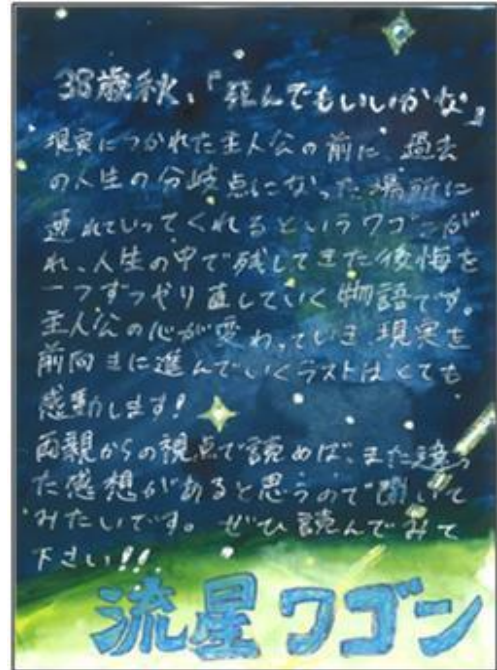 38歳秋、『死んでもいいかな』
現実につかれた主人公の前に、過去
の人生の分岐点になった場所に
連れていってくれるというワゴンが
れ、人生の中で残してきた後悔を
一つずつやり直していく物語です。
主人公の心が変わっていき、現実を
前向きに進んでいくラストはとても
感動します!
両親からの視点で読めば、また違っ
た感想があると思うので聞いて
みたいです。ぜひ読んでみて
下さい!!
流星ワゴン